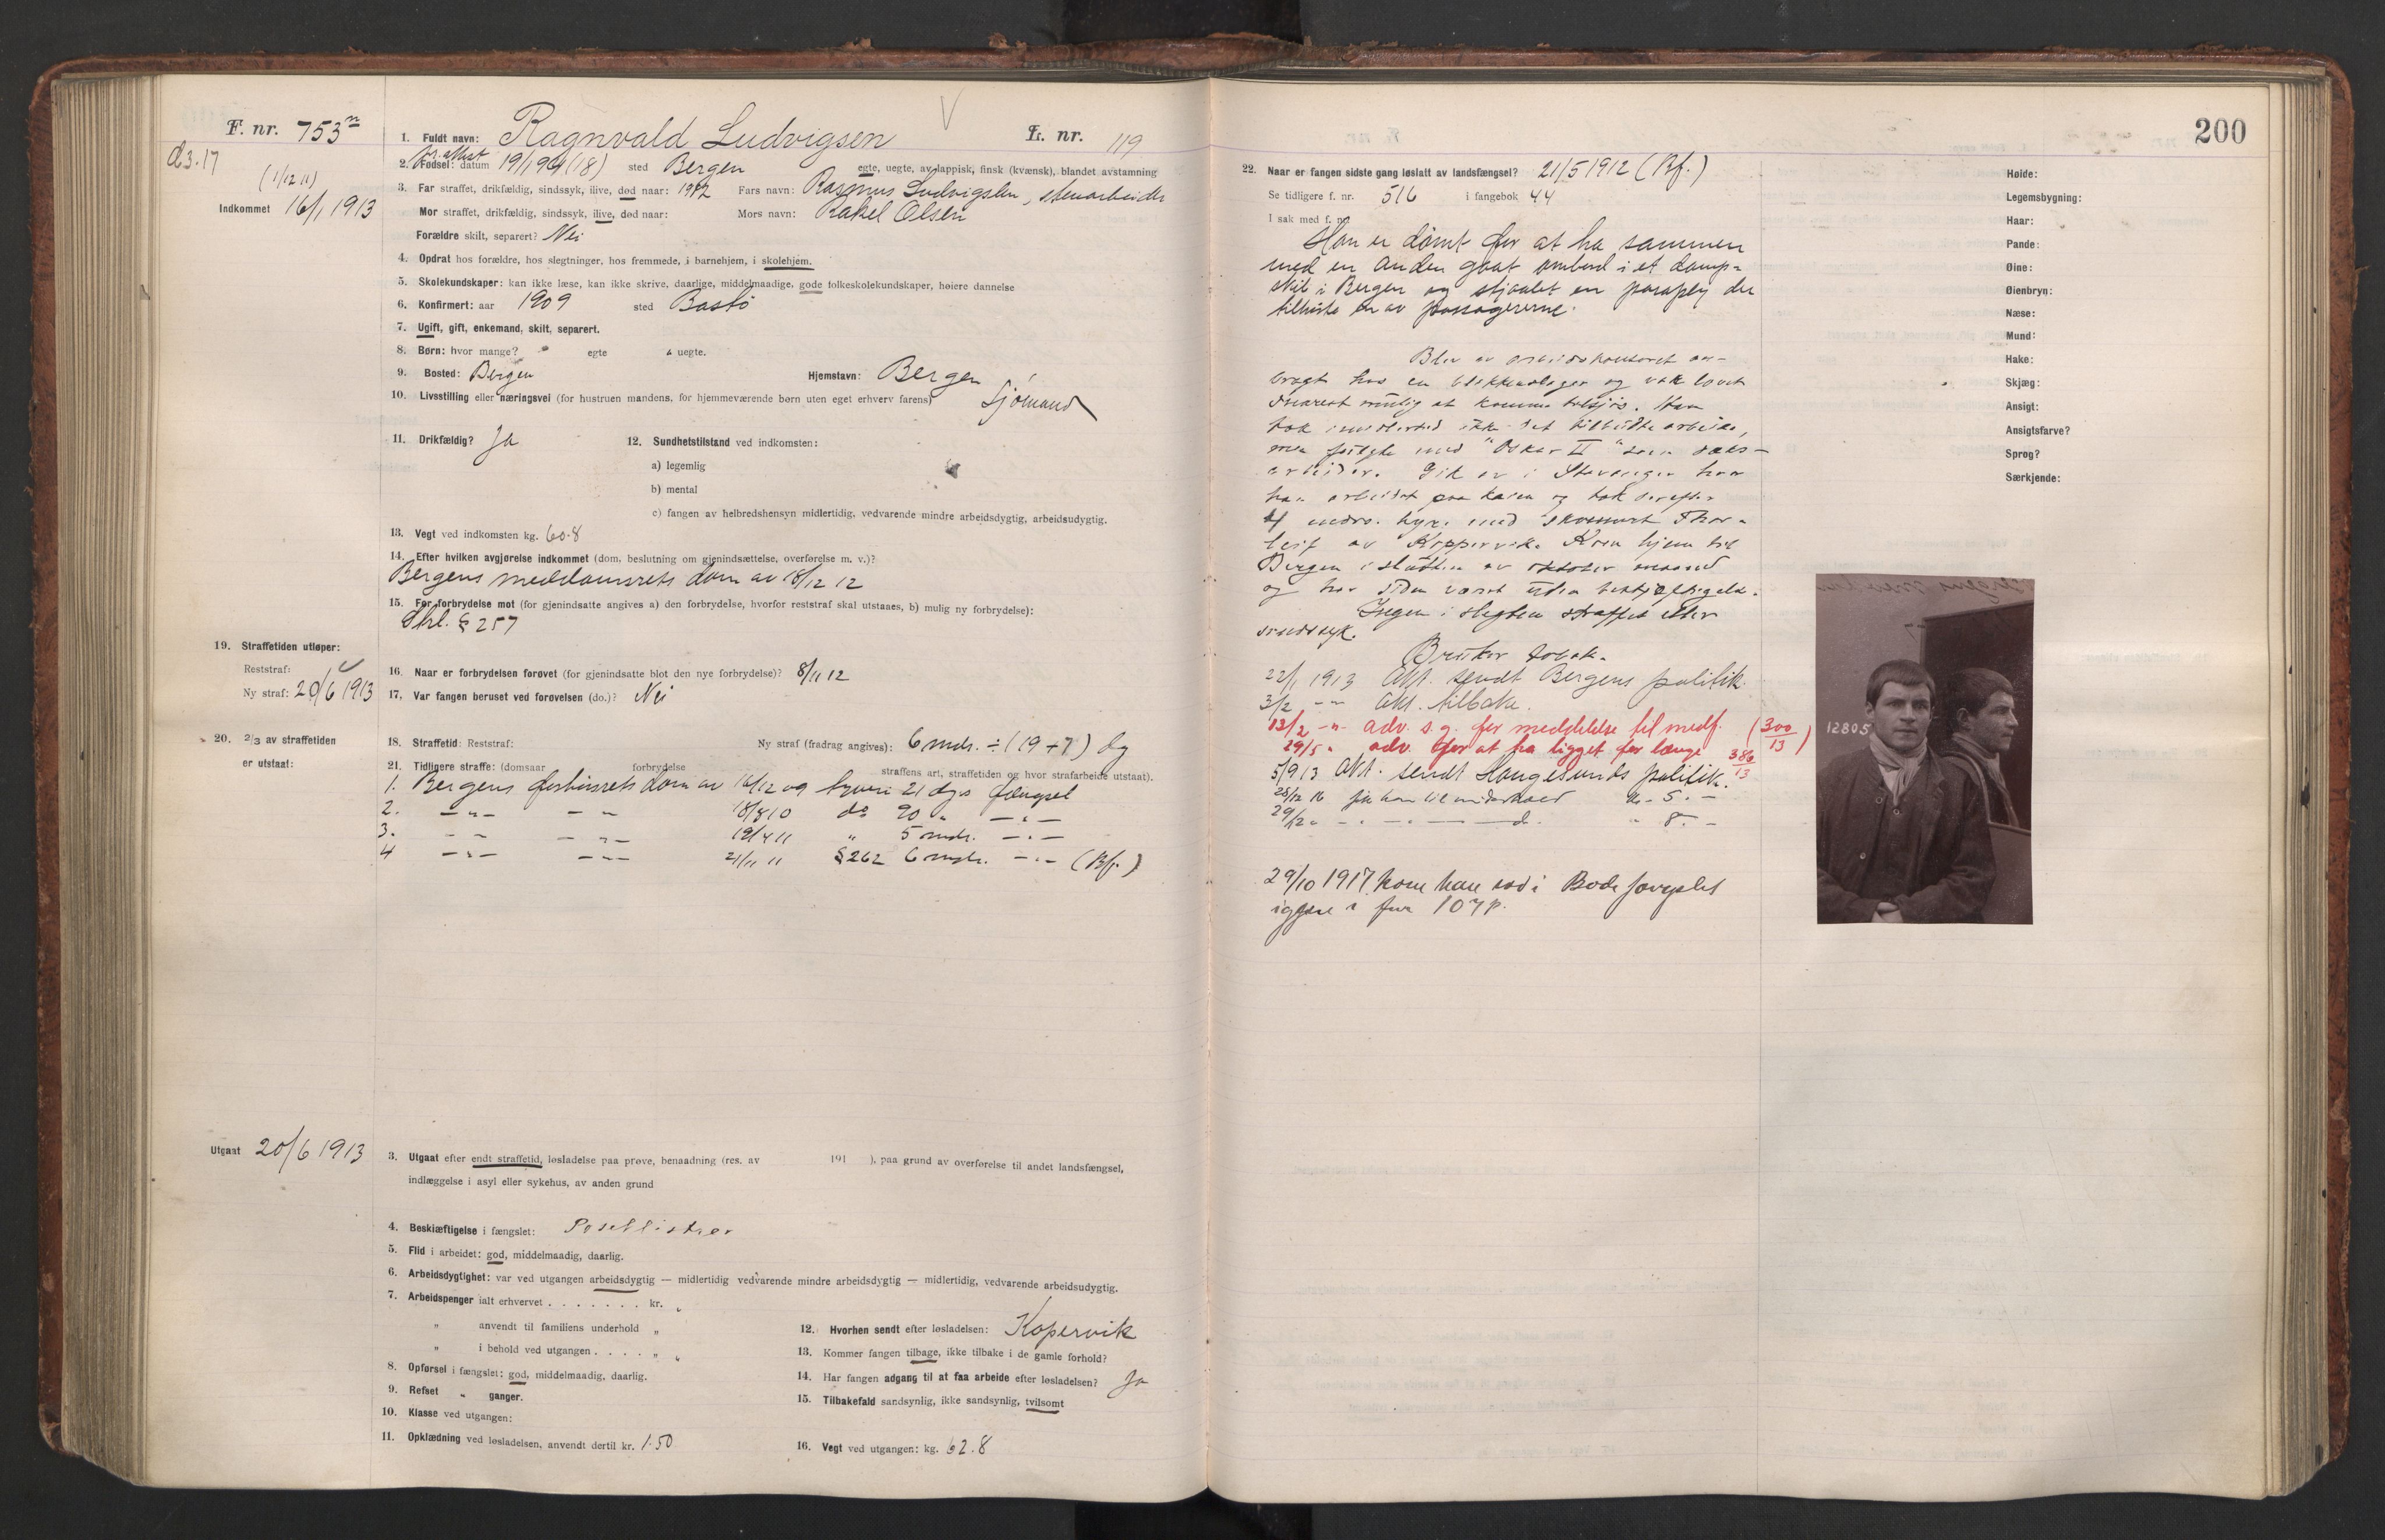 F. nr. 753
L. nr. 119
1. Fuldt navn: Ragnvald Ludvigsen
2. Fødsel: datum 19/1 94 (18) sted Bergen egte, uegte, av lappisk, finsk (kvænsk), blandet avstamning
(1/12 11)
Indkommet 16/1 1913
3. Far straffet, drikfældig, sindssyk, ilive, død naar: 1912 Fars navn: Rasmus Ludvigsen, stenarbeider
Mor straffet, drikfældig, sindssyk, ilive, død naar: Mors navn: Rakel Olsen
Forældre skilt, separert? Nei
4. Opdrat hos forældre, hos slegtninger, hos fremmede, i barnehjem, i skolehjem.
5. Skolekundskaper: kan ikke læse, kan ikke skrive, daarlige, middelmaadige, gode folkeskolekundskaper, høiere dannelse
6. Konfirmert: aar 1909 sted Bastø
7. Ugift, gift, enkemand, skilt, separert.
8. Børn: hvor mange? egte uegte.
9. Bosted: Bergen Hjemstavn: Bergen
10. Livsstilling eller næringsvei (for hustruen mandens, for hjemmeværende børn uten eget erhverv farens) Sjømand
11. Drikfældig? Ja
12. Sundhetstilstand ved indkomsten:
a) legemlig
b) mental
c) fangen av helbredshensyn midlertidig, vedvarende mindre arbeidsdygtig, arbeidsudygtig.
13. Vegt ved indkomsten kg. 60.8
14. Efter hvilken avgjørelse indkommet (dom, beslutning om gjenindsættelse, overførelse m. v.)?
Bergens meddomsrets dom av 18/12 12
15. For forbrydelse mot (for gjenindsatte angives a) den forbrydelse, hvorfor reststraf skal utstaaes, b) mulig ny forbrydelse):
Strl. § 257
19. Straffetiden utløper:
Reststraf:
Ny straf: 20/6 1913
16. Naar er forbrydelsen forøvet (for gjenindsatte blot den nye forbrydelse)? 8/11 12
17. Var fangen beruset ved forøvelsen (do.)? Nei
20. 2/3 av straffetiden
er utstaat:
18. Straffetid: Reststraf: Ny straf (fradrag angives): 6 mdr. ÷ (19 + 7) dg
21. Tidligere straffe: (domsaar forbrydelse straffens art, straffetiden og hvor strafarbeide utstaat).
1. Bergens forhørsrets dom av 16/12 09 tyveri 21 dgs fængsel
2. -"- -"- 18/3 10 do 90 " -"-
3. -"- -"- 19/4 11 " 5 mdr. -"-
4 -"- -"- 21/11 11 § 262 6 mdr. -"- (Bf.)
Utgaat 20/6 1913
3. Utgaat efter endt straffetid, løsladelse paa prøve, benaadning (res. av 191 ), paa grund av overførelse til andet landsfængsel,
indlæggelse i asyl eller sykehus, av anden grund
4. Beskjæftigelse i fængslet:
5. Flid i arbeidet: god, middelmaadig, daarlig.
6. Arbeidsdygtighet: var ved utgangen arbeidsdygtig — midlertidig vedvarende mindre arbeidsdygtig — midlertidig, vedvarende arbeidsudygtig.
7. Arbeidspenger ialt erhvervet . . . . . . . kr. "
" anvendt til familiens underhold "
" i behold ved utgangen . . . . " "
8. Opførsel i fængslet: god, middelmaadig, daarlig.
9. Refset " ganger.
10. Klasse ved utgangen:
11. Opklædning ved løsladelsen, anvendt dertil kr. 1.50
12. Hvorhen sendt efter løsladelsen: Kopervik
13. Kommer fangen tilbage, ikke tilbake i de gamle forhold?
14. Har fangen adgang til at faa arbeide efter løsladelsen? Ja
15. Tilbakefald sandsynlig, ikke sandsynlig, tvilsomt
16. Vegt ved utgangen: kg. 62.8
200
22. Naar er fangen sidste gang løslatt av landsfængsel? 21/5 1912 (Bf.)
Se tidligere f. nr. 516 i fangebok 44
I sak med f. nr.
Han er dømt for at ha sammen
med en anden gaat ombord i et damp-
skib i Bergen og stjaalet en paraply der
tilhørte en av passagererne.
Blev av arbeidskontoret an-
bragt hos en blikkenslager og var lovet
snarest mulig at komme tilsjøs. Han
tok imidlertid ikke det tilbudte arbeide,
men fulgte med "Oskar II" som
arbeider. Gik av i Stavanger hvor
han arbeidet paa kaien og tok derefter
4 mdrs. hyre med
av Koppervik. Kom hjem til
Bergen i slutten av oktober maaned
og har siden været uten beskjæftigelse.
Ingen i slegten straffet eller
sindssyk.
Bruker tobak.
22/1 1913 Akt. sendt Bergens politik.
3/2 -"- Akt. tilbake.
13/2 -"- adv. s.g. for meddelelse til medf. (300/13)
29/5 " adv. for at ha ligget for længe 386/13
5/9 13 Akt. sendt Haugesunds politik.
28/12 16 fik han til underhold kr. 5.-
29/12 " - " - " - d. " 8.-
29/10 1917 kom han ind i Bodsfængslet
igjen i fnr 107 p.
12805
Høide:
Legemsbygning:
Haar:
Pande:
Øine:
Øienbryn:
Næse:
Mund:
Hake:
Skjæg:
Ansigt:
Ansigtsfarve?
Sprog?
Særkjende: